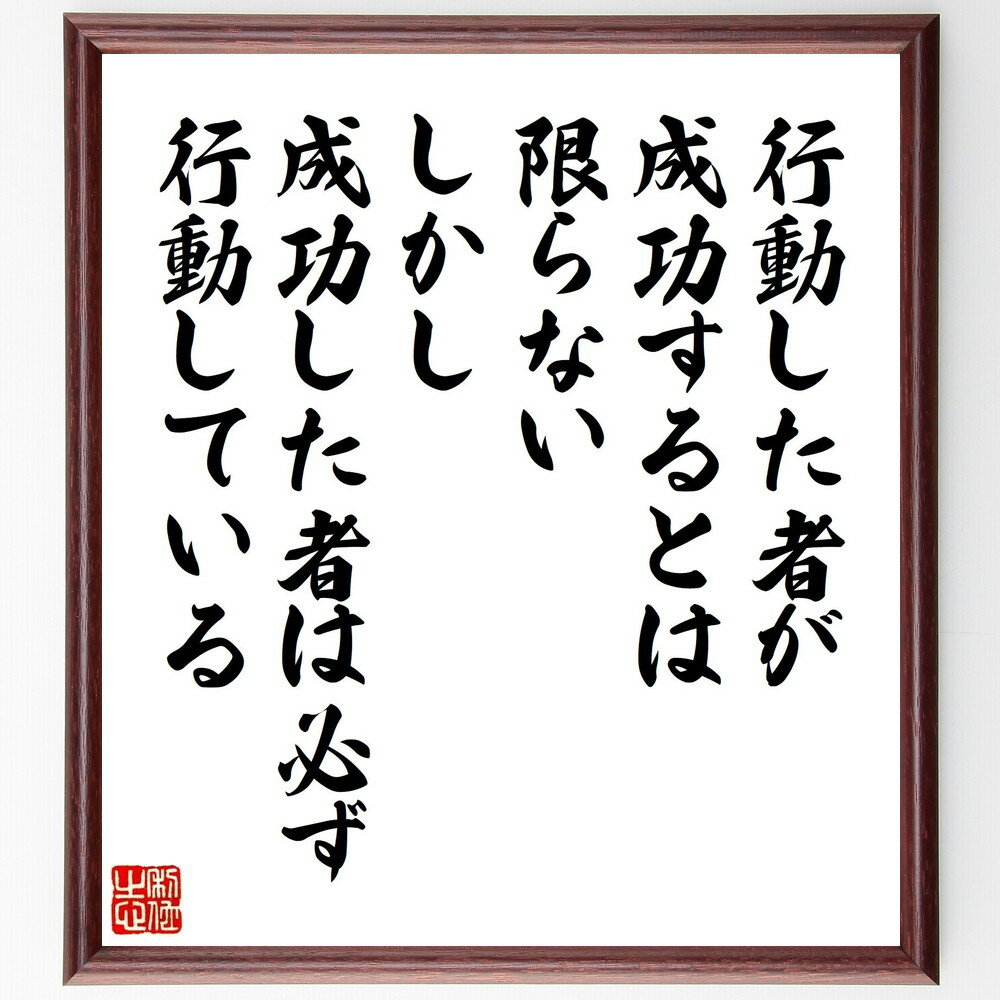 行動した者が
成功するとは
限らない
しかし
成功した者は必ず
行動している